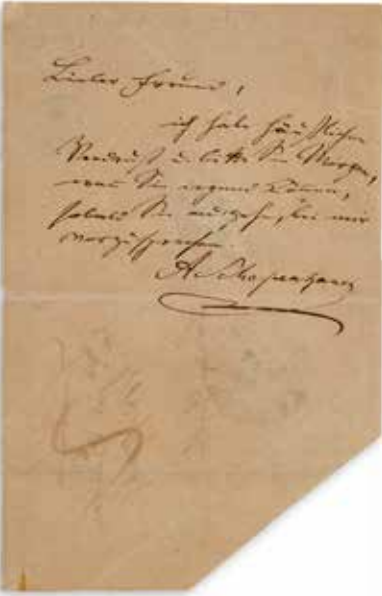 Lieber Freund,
ich habe häuslichen
Verdruß u. bitte Sie Morgen,
wenn Sie irgend können,
sobald Sie ausgehn, bei mir
vorzusprechen.
A. Schopenhauer